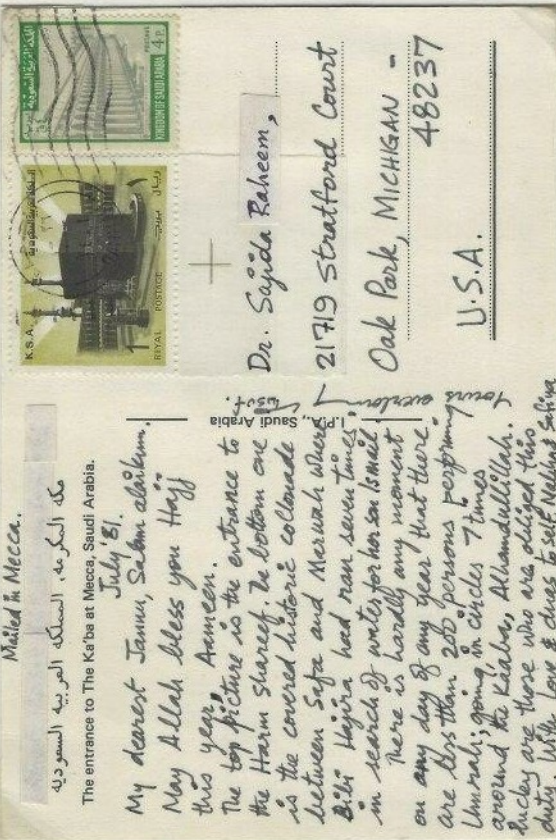 Mailed in Mecca.
مكة المكرمة، المملكة العربية السعودية
The entrance to The Ka'ba at Mecca, Saudi Arabia.
July '81.
My dearest Jannu, Salam alaikum.
May Allah bless you Hajj
this year, Aameen.
The top picture is the entrance to
the Harm shareef. The bottom one
is the covered historic collonade
between Safa and Marwah where
Bibi Hajira had ran seven times
in search of water for her son Ismail
There is hardly any moment
on any day of any year that there
are less than 200 persons performing
Umrah; going in circles 7 times
around the Kaaba, Alhamdullillah.
Lucky are those who are obliged this
duty. With love & duas to self,
yours everloving
I.P.A., Saudi Arabia
K.S.A.
المملكة العربية السعودية
1 RIYAL POSTAGE ريال
المملكة العربية السعودية
KINGDOM OF SAUDI ARABIA
POSTAGE 4 P.
Dr. Sajida Raheem,
21719 Stratford Court
Oak Park, MICHIGAN -
48237
U.S.A.